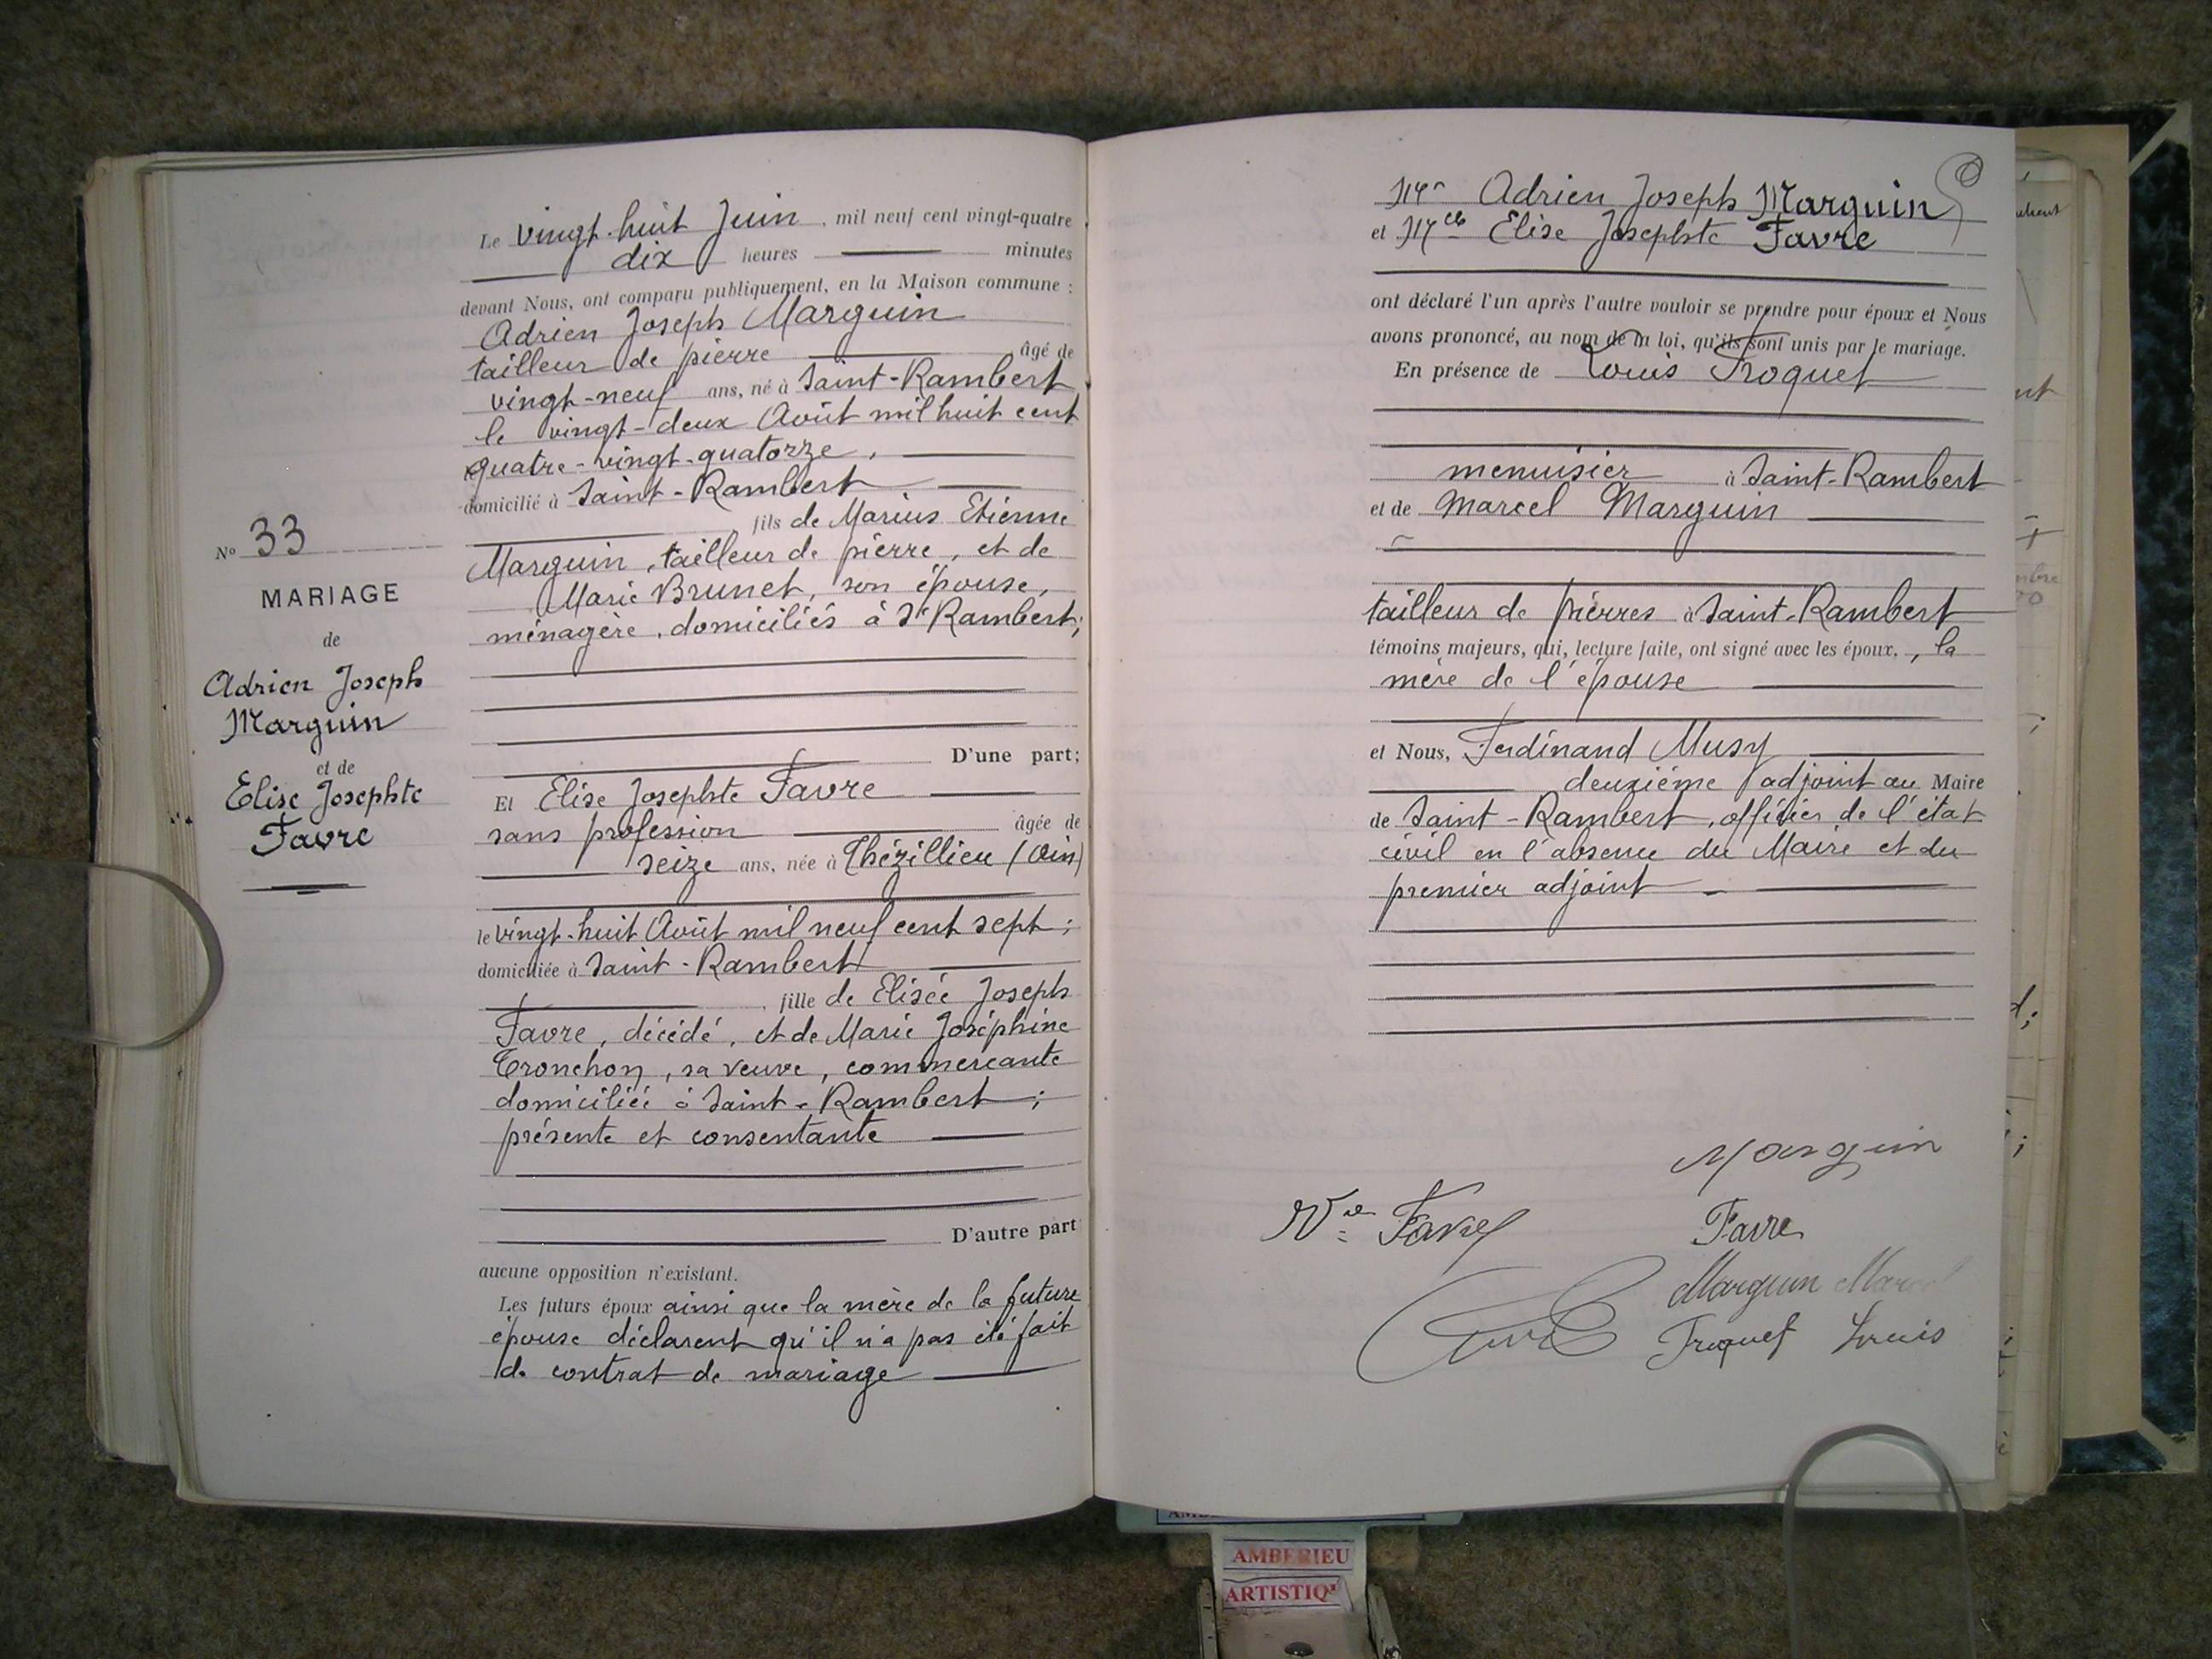 Le vingt-huit Juin, mil neuf cent vingt-quatre
dix heures minutes
devant Nous, ont comparu publiquement, en la Maison commune :
Adrien Joseph Marguin
tailleur de pierre âgé de
vingt-neuf ans, né à Saint-Rambert
le vingt-deux Août mil huit cent
quatre-vingt-quatorze,
domicilié à Saint-Rambert
fils de Marius Etienne
Marguin, tailleur de pierre, et de
Marie Brunet, son épouse,
ménagère, domiciliés à St Rambert;
D'une part;
Et Elise Josephte Favre
sans profession âgée de
seize ans, née à Thézillieu (Ain)
le vingt-huit Août mil neuf cent sept;
domiciliée à Saint-Rambert
fille de Elisée Joseph
Favre, décédé, et de Marie Joséphine
Tronchon, sa veuve, commercante
domiciliée à Saint-Rambert;
présente et consentante
D'autre part
aucune opposition n'existant.
Les futurs époux ainsi que la mère de la future
épouse déclarent qu'il n'a pas été fait
de contrat de mariage
No 33
MARIAGE
de
Adrien Joseph
Marguin
et de
Elise Josephte
Favre
Mr Adrien Joseph Marguin
et Melle Elise Josephte Favre
ont déclaré l'un après l'autre vouloir se prendre pour époux et Nous
avons prononcé, au nom de la loi, qu'ils sont unis par le mariage.
En présence de Louis Troquet
menuisier à Saint-Rambert
et de Marcel Marguin
tailleur de pierres à Saint-Rambert
témoins majeurs, qui, lecture faite, ont signé avec les époux, , la
mère de l'épouse
et Nous, Ferdinand Musy
deuxième adjoint au Maire
de Saint-Rambert, officier de l'état
civil en l'absence du Maire et du
premier adjoint
Marguin
Vve Favre
Favre
Marguin Marcel
Troquet Louis
AMBERIEU
ARTISTIQ